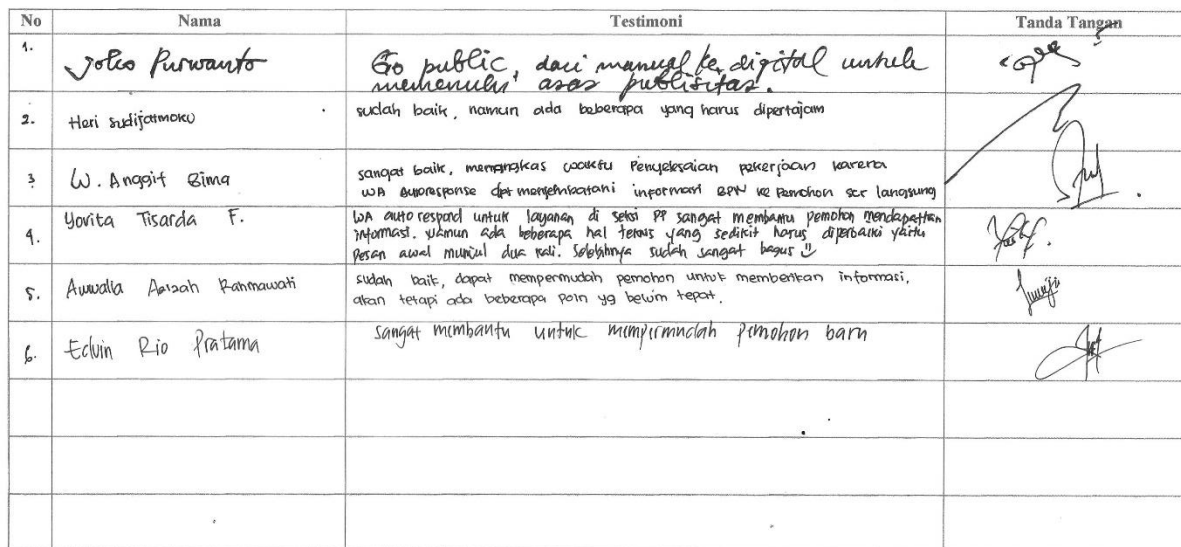 No Nama Testimoni Tanda Tangan
1. Joko Purwanto Go public, dari manual ke digital untuk
memenuhi asas publisitas.
2. Heri sudijatmoko sudah baik, namun ada beberapa yang harus dipertajam
3 W. Anggit Bima sangat baik, memangkas waktu Penyelesaian pekerjaan karena
WA autoresponse dpt menjembatani informasi BPN ke Pemohon scr langsung
4. Yovita Tisarda F. WA auto respond untuk layanan di seksi PP sangat membantu pemohon mendapatkan
informasi. Namun ada beberapa hal teknis yang sedikit harus diperbaiki yaitu
Pesan awal muncul dua kali. Selebihnya sudah sangat bagus
5. Auwalia Azizah Rahmawati sudah baik, dapat mempermudah pemohon untuk memberikan informasi,
akan tetapi ada beberapa poin yg belum tepat.
6. Edwin Rio Pratama sangat membantu untuk mempermudah pemohon baru